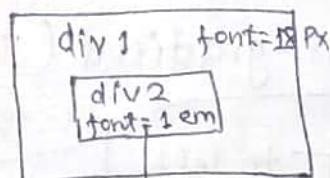 div 1 font=18 Px
div 2
font= 1 em